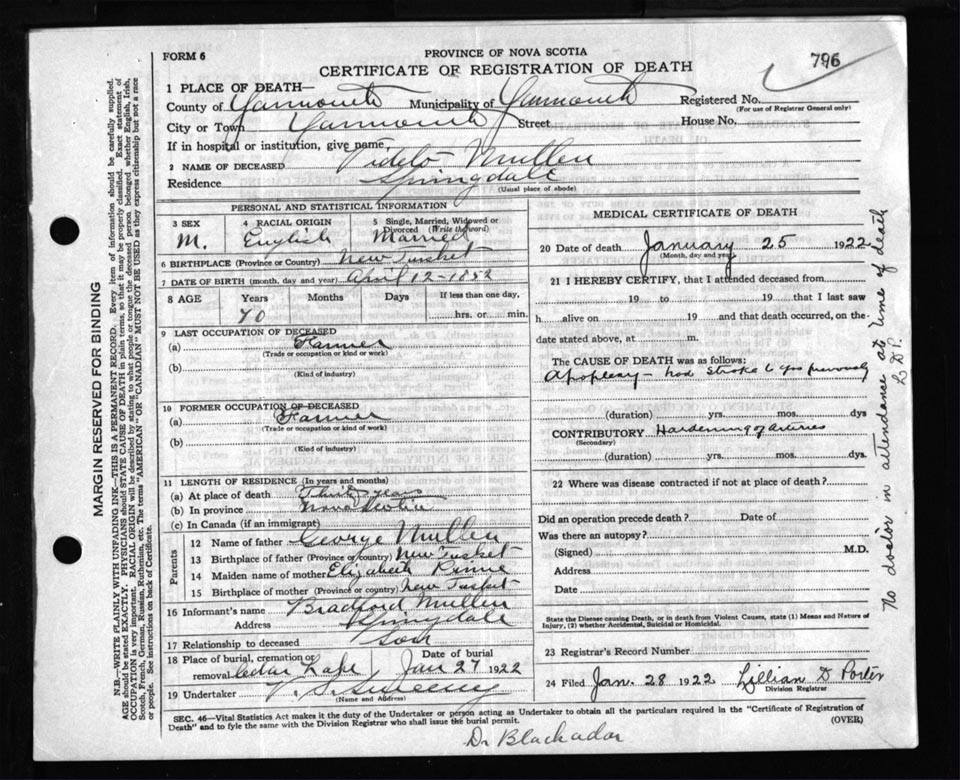 FORM 6
PROVINCE OF NOVA SCOTIA
CERTIFICATE OF REGISTRATION OF DEATH
796
1 PLACE OF DEATH—
County of Yarmouth Municipality of Yarmouth Registered No.
(For use of Registrar General only)
City or Town Yarmouth Street House No.
If in hospital or institution, give name
2 NAME OF DECEASED Mullen
Residence Springdale
(Usual place of abode)
PERSONAL AND STATISTICAL INFORMATION
3 SEX M.
4 RACIAL ORIGIN English
5 Single, Married, Widowed or Divorced (Write the word) Married
6 BIRTHPLACE (Province or Country) New Tusket
7 DATE OF BIRTH (month, day and year) April 12-1852
8 AGE Years Months Days If less than one day,
70 hrs. or min.
9 LAST OCCUPATION OF DECEASED
(a) Farmer
(Trade or occupation or kind or work)
(b)
(Kind of industry)
10 FORMER OCCUPATION OF DECEASED
(a) Farmer
(Trade or occupation or kind or work)
(b)
(Kind of industry)
11 LENGTH OF RESIDENCE (In years and months)
(a) At place of death years
(b) In province Nova Scotia
(c) In Canada (if an immigrant)
Parents
12 Name of father George Mullen
13 Birthplace of father (Province or country) New Tusket
14 Maiden name of mother Elizabeth
15 Birthplace of mother (Province or country) New Tusket
16 Informant's name Bradford Mullen
Address Springdale
17 Relationship to deceased Son
18 Place of burial, cremation or removal Cedar Lake Date of burial Jan 27 1922
19 Undertaker V. S. Sweeny
(Name and Address)
MEDICAL CERTIFICATE OF DEATH
20 Date of death January 25 1922
(Month, day and year)
21 I HEREBY CERTIFY, that I attended deceased from
19 to 19 that I last saw
h alive on 19 and that death occurred, on the
date stated above, at m.
The CAUSE OF DEATH was as follows:
Apoplexy - had stroke 6 yrs previously
(duration) yrs. mos. dys
CONTRIBUTORY Hardening of arteries
(Secondary)
(duration) yrs. mos. dys.
22 Where was disease contracted if not at place of death?
Did an operation precede death? Date of
Was there an autopsy?
(Signed) M.D.
Address
Date
State the Disease causing Death, or in death from Violent Causes, state (1) Means and Nature of
Injury, (2) whether Accidental, Suicidal or Homicidal.
23 Registrar's Record Number
24 Filed Jan. 28 1922 Lillian D Porter
Division Registrar
No doctor in attendance at time of death
L D P.
SEC. 46—Vital Statistics Act makes it the duty of the Undertaker or person acting as Undertaker to obtain all the particulars required in the "Certificate of Registration of
Death" and to fyle the same with the Division Registrar who shall issue the burial permit.
(OVER)
Dr Blackadar
MARGIN RESERVED FOR BINDING
N.B.—WRITE PLAINLY WITH UNFADING INK—THIS IS A PERMANENT RECORD. Every item of information should be carefully supplied.
AGE should be stated EXACTLY. PHYSICIANS should STATE CAUSE OF DEATH in plain terms, so that it may be properly classified. Exact statement of
OCCUPATION is very important. RACIAL ORIGIN will be described by stating to what people or tongue the deceased person belonged whether English, Irish,
Scotch, French, German, Russian, Ruthenian, etc. The terms "AMERICAN" OR "CANADIAN" MUST NOT BE USED as they express citizenship but not a race
or people. See instructions on back of Certificate.